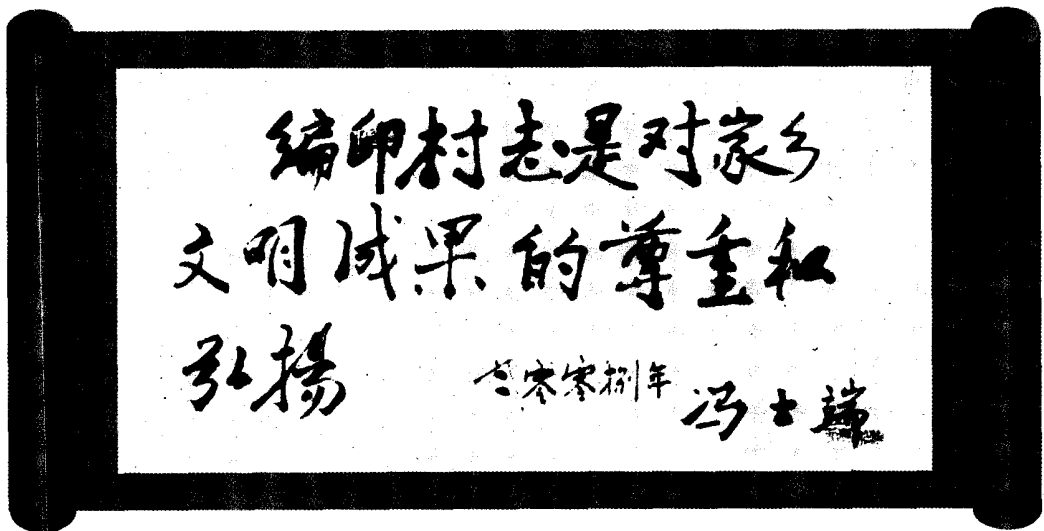 编印村志是对家乡
文明成果的尊重和
弘扬
二零零捌年
冯士端